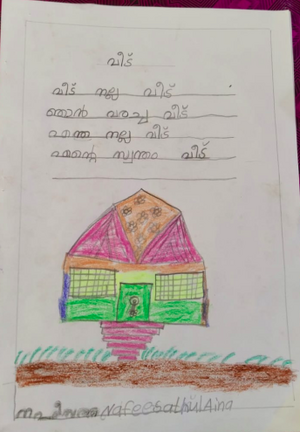 വീട്
വീട് നല്ല വീട്
ഞാൻ വരച്ച വീട്
എന്ത നല്ല വീട്
എന്റെ സ്വന്തം വീട്
നഫീസത്തു Nafeesathul Aina